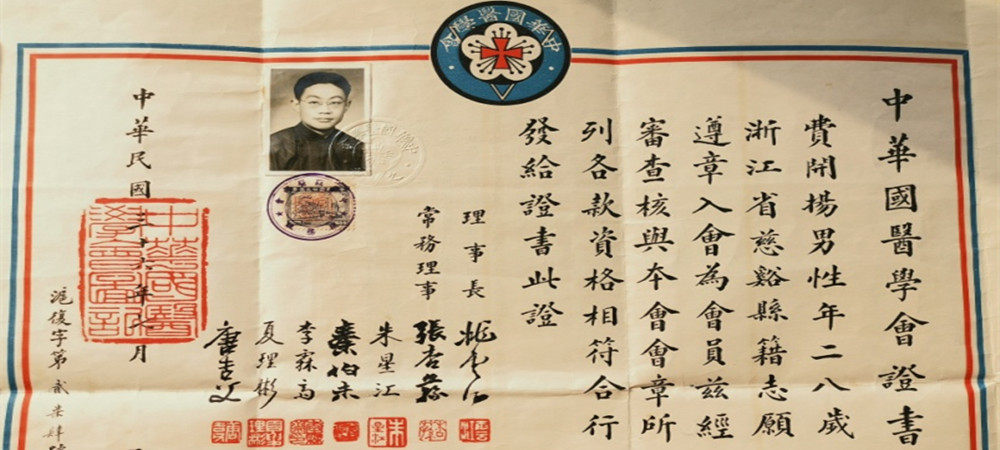 中華國醫學會
中華國醫學會證書
費開揚男性年二八歲
浙江省慈谿縣籍志願
遵章入會為會員茲經
審查核與本會會章所
列各款資格相符合行
發給證書此證
理事長
常務理事
張杏蓀
朱星江
秦伯未
李霖高
夏理彬
唐吉父
中華民國三十六年七月
滬復字第貳柒肆號